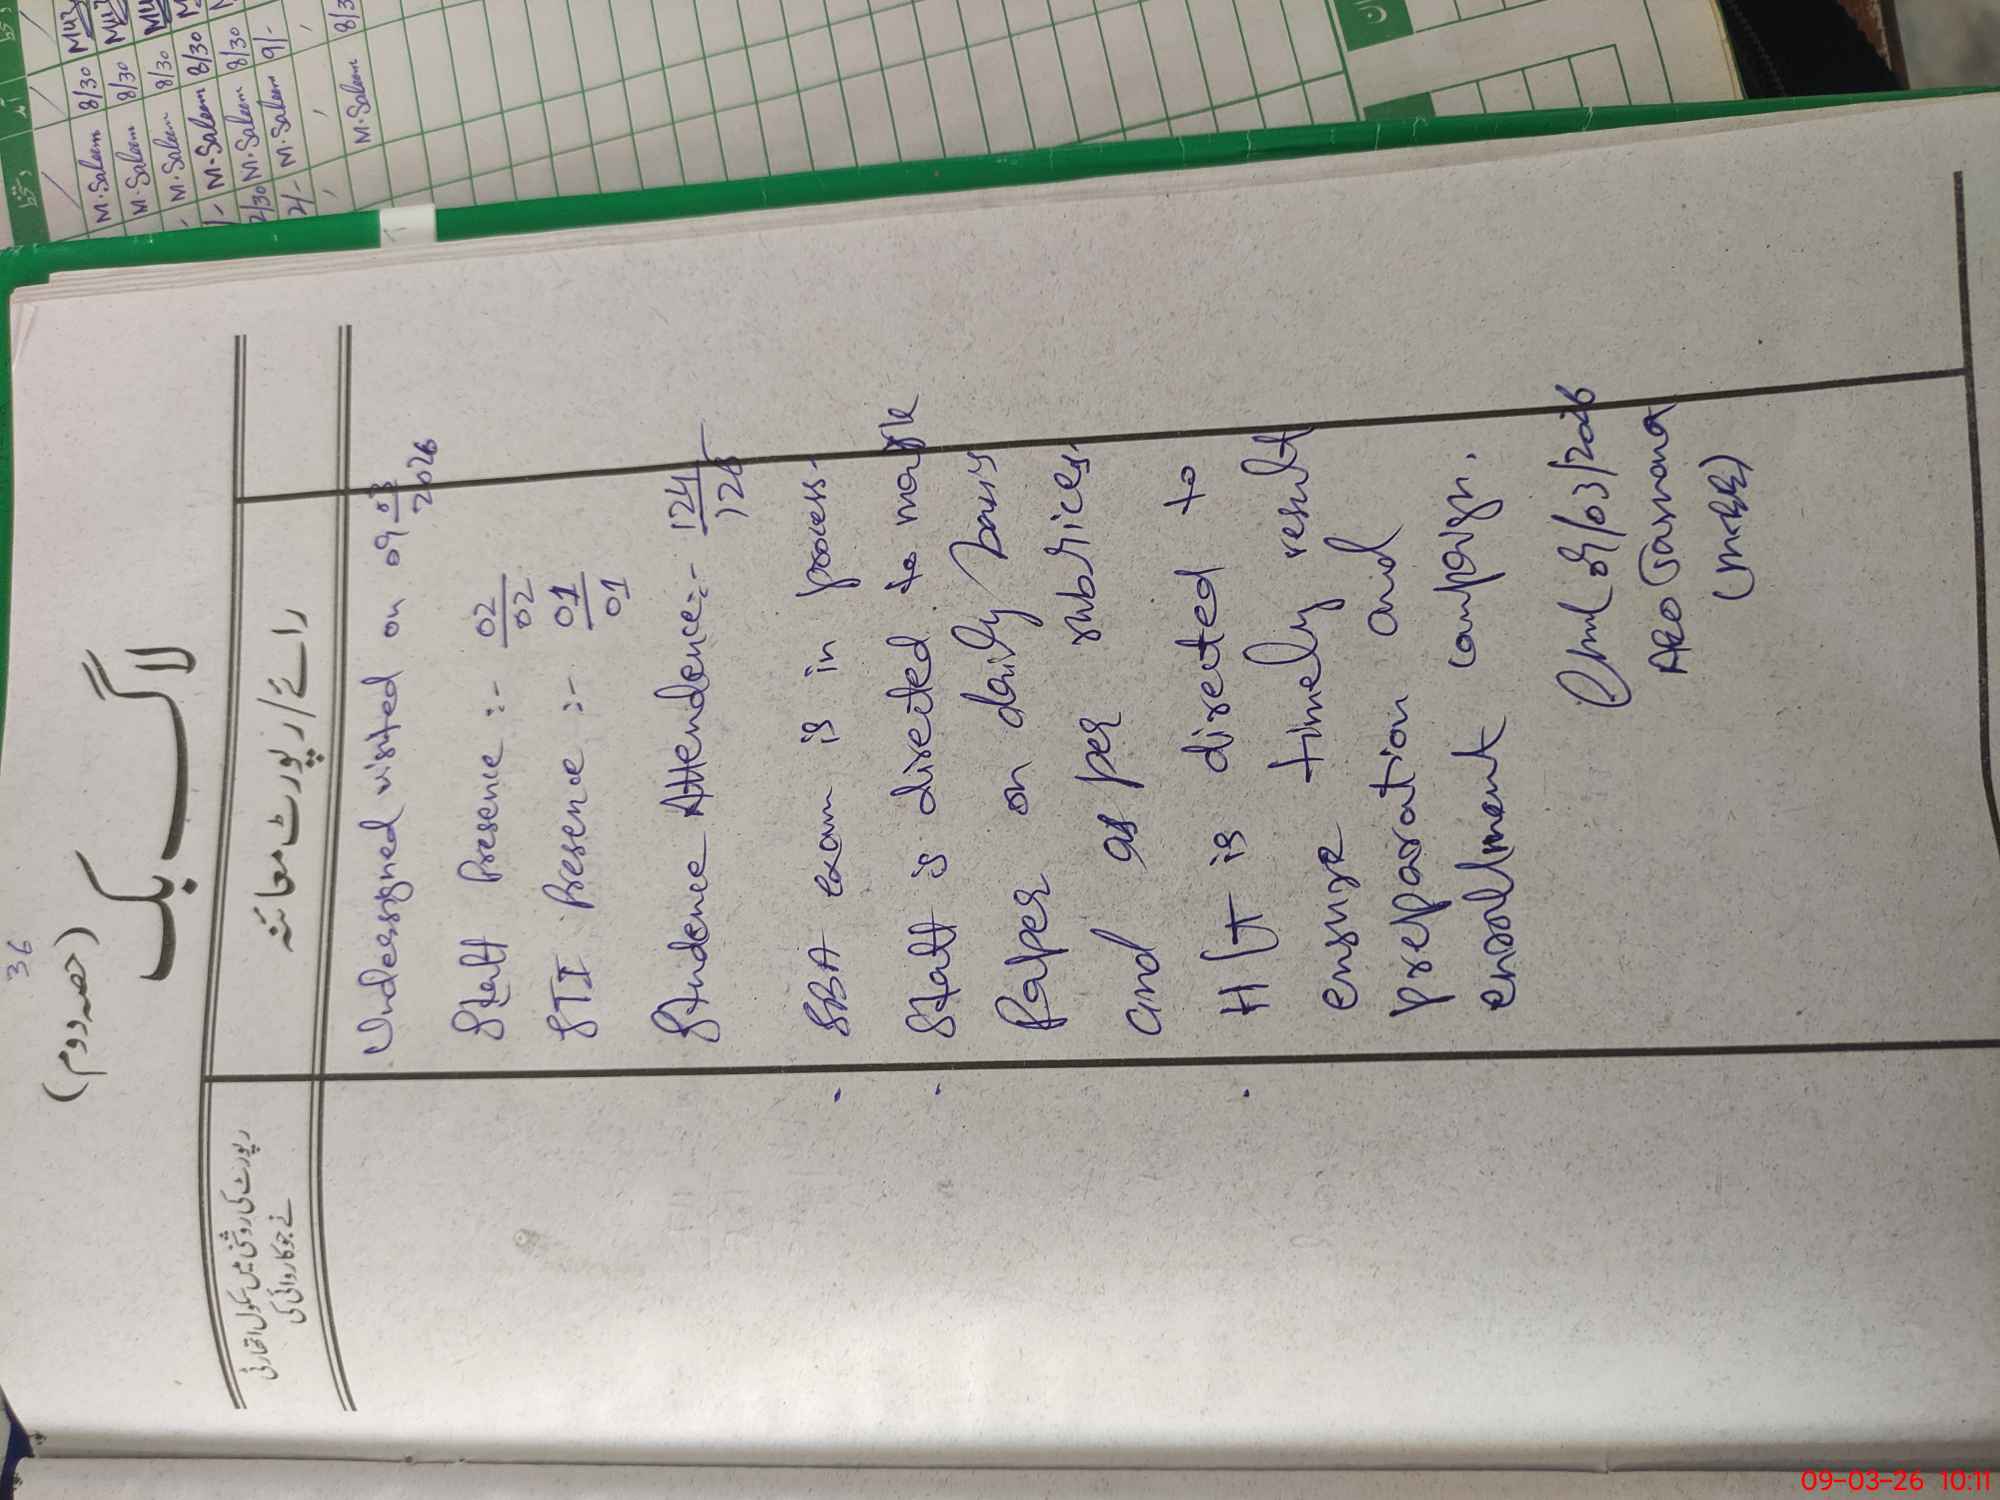 36
(حصہ دوم)
لاگ بک
رائے/رپورٹ معائنہ
رپورٹ کی روشنی میں سکول اتھارٹی
نے جو کاروائی کی
Undersigned visited on 09 03
2026
Staff Presence :- 02
02
STI Presence :- 01
01
Studence Attendence:- 124
126
- SBA exam is in process.
- Staff is directed to mark
Paper on daily basis
and as per rubrices.
. H/T is directed to
ensure timely result
preparation and
enrollment campaign.
09/03/2026
AEO Jarmana
دستخط
آمد
M.Saleem 8/30
M.Saleem 8/30
M.Saleem 8/30
M.Saleem 8/30
M.Saleem 8/30
M.Saleem 9/-
M.Saleem 8/3
09-03-26 10:11